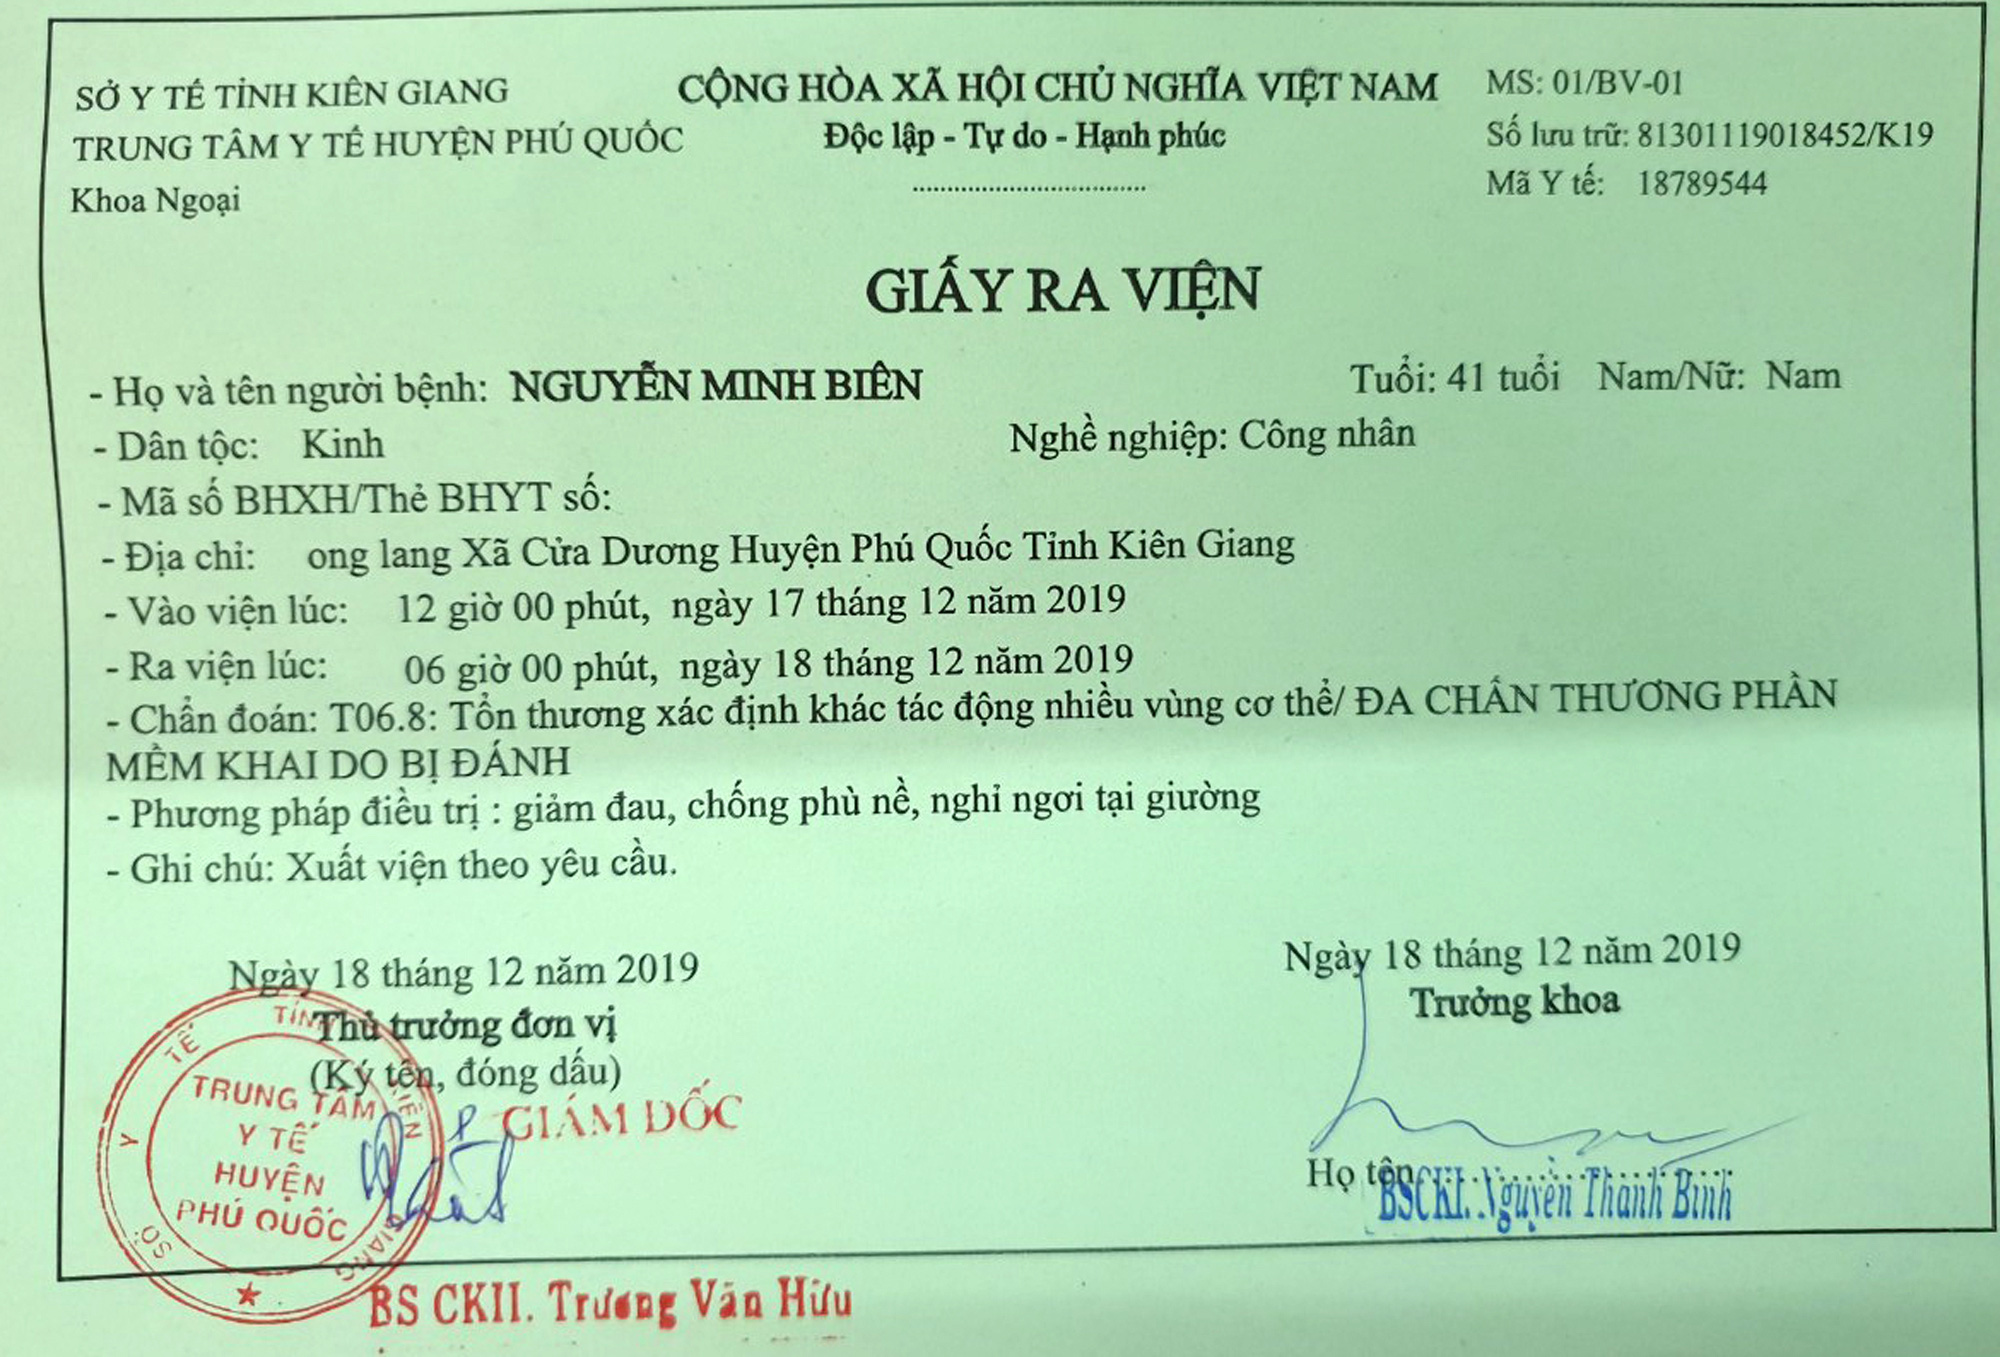 SỞ Y TẾ TỈNH KIÊN GIANG
TRUNG TÂM Y TẾ HUYỆN PHÚ QUỐC
Khoa Ngoại
CỘNG HÒA XÃ HỘI CHỦ NGHĨA VIỆT NAM
Độc lập - Tự do - Hạnh phúc
MS: 01/BV-01
Số lưu trữ: 81301119018452/K19
Mã Y tế: 18789544
GIẤY RA VIỆN
- Họ và tên người bệnh: NGUYỄN MINH BIÊN Tuổi: 41 tuổi Nam/Nữ: Nam
- Dân tộc: Kinh Nghề nghiệp: Công nhân
- Mã số BHXH/Thẻ BHYT số:
- Địa chỉ: ong lang Xã Cửa Dương Huyện Phú Quốc Tỉnh Kiên Giang
- Vào viện lúc: 12 giờ 00 phút, ngày 17 tháng 12 năm 2019
- Ra viện lúc: 06 giờ 00 phút, ngày 18 tháng 12 năm 2019
- Chẩn đoán: T06.8: Tổn thương xác định khác tác động nhiều vùng cơ thể/ ĐA CHẤN THƯƠNG PHẦN
MỀM KHAI DO BỊ ĐÁNH
- Phương pháp điều trị : giảm đau, chống phù nề, nghỉ ngơi tại giường
- Ghi chú: Xuất viện theo yêu cầu.
Ngày 18 tháng 12 năm 2019
Thủ trưởng đơn vị
(Ký tên, đóng dấu)
GIÁM ĐỐC
SỞ Y TẾ TỈNH KIÊN GIANG
TRUNG TÂM
Y TẾ
HUYỆN
PHÚ QUỐC
BS CKII. Trương Văn Hữu
Ngày 18 tháng 12 năm 2019
Trưởng khoa
Họ tên
BSCKI. Nguyễn Thanh Bình